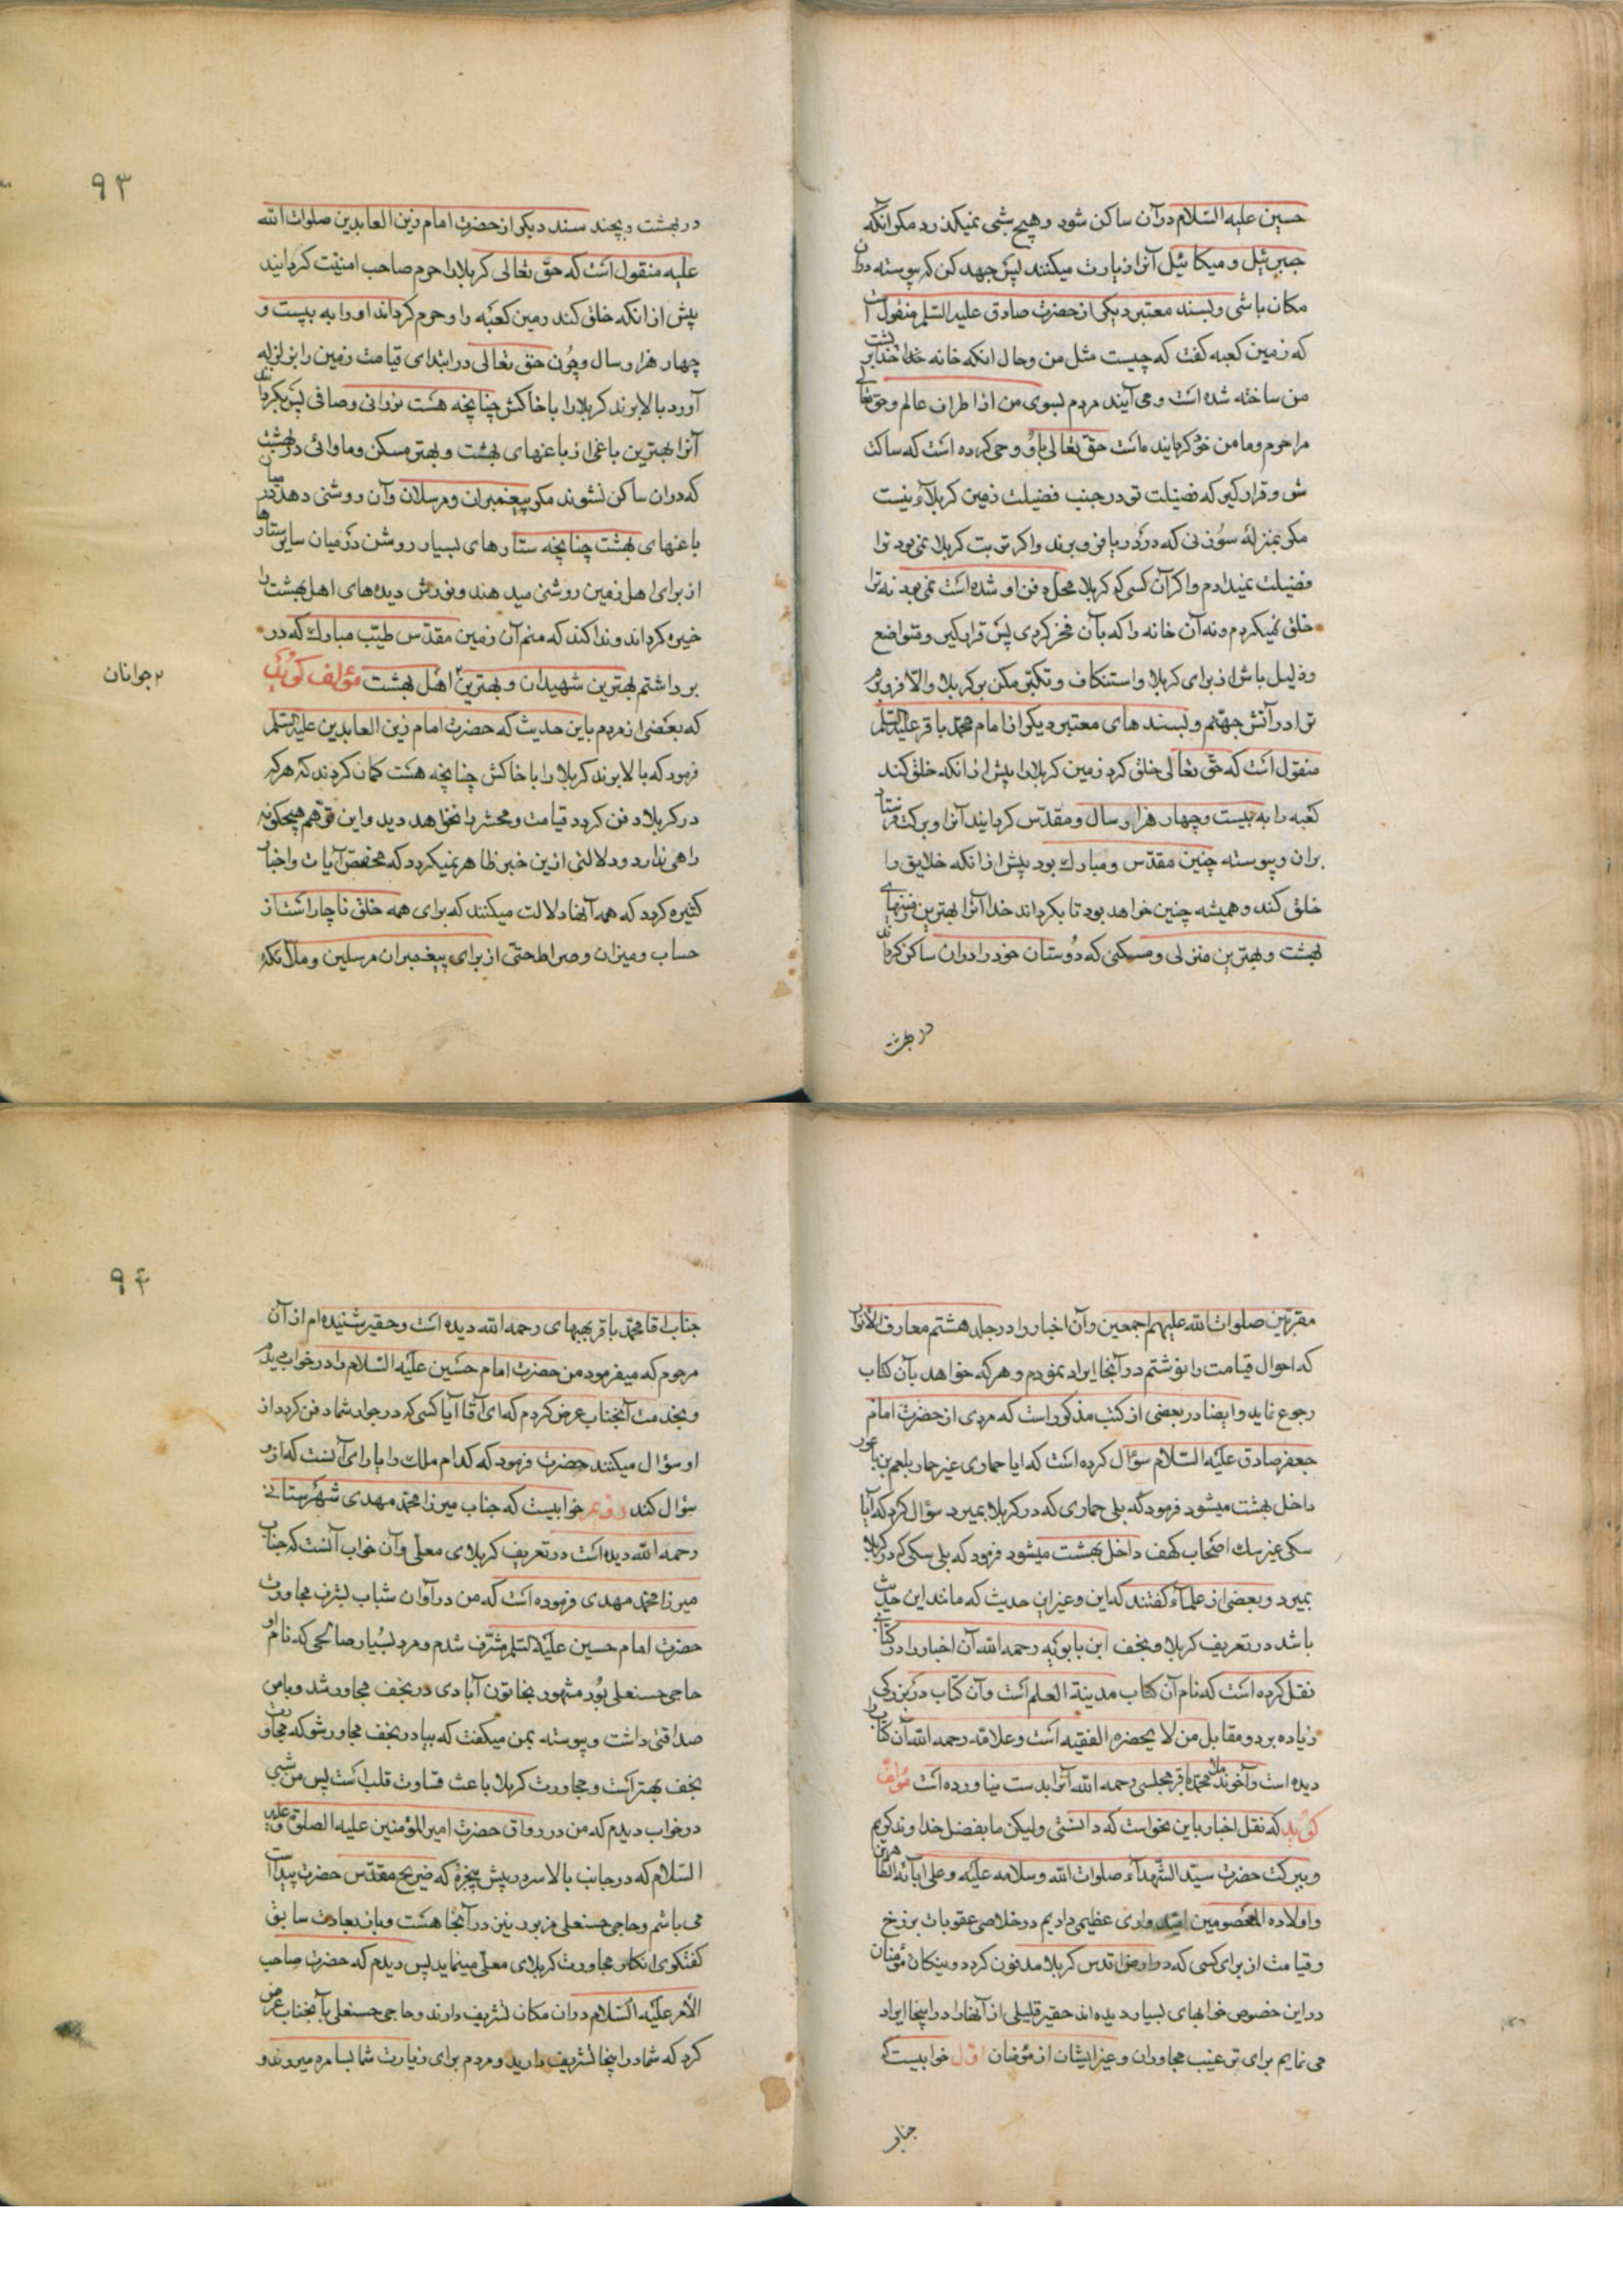 حسین علیه السّلام در آن ساکن شود و هیچ شبی نمیگذرد مگر آنکه
جبرئیل و میکائیل آنرا زیارت میکنند پس جهد کن که پیوسته در آن
مکان باشی و بسند معتبر دیگر از حضرت صادق علیه السّلم منقول است
که زمین کعبه گفت که چیست مثل من و حال انکه خانه خدا بر پشت
من ساخته شده است و می آیند مردم بسوی من از اطراف عالم و حق تعالی
مرا حرم و مامن خود گردانیده است حقّ تعالی باو وحی کرده است که ساکت
شو و قرار گیر که فضیلت تو در جنب فضیلت زمین کربلاء نیست
مگر بمنزلهٔ سوزنی که در دریا فرو برند و اگر تربت کربلا نمی بود ترا
فضیلت نمیدادم و اگر آن کسی که کربلا محل دفن او شده است نمی بود نه ترا
خلق نمیکردم و نه آن خانه را که بآن فخر کردی پس قرار گیر و متواضع
و ذلیل باش از برای کربلا و استنکاف و تکبّر مکن بر کربلا والّا فرو برم
ترا در آتش جهنّم و بسند های معتبر دیگر از امام محمّد باقر علیه السّلم
منقول است که حقّ تعالی خلق کرد زمین کربلا را پیش از انکه خلق کند
کعبه را به بیست و چهار هزار سال و مقدّس گردانید آنرا و برکت فرستاد
بران و پیوسته چنین مقدّس و مبارک بود پیش از انکه خلایق را
خلق کند و همیشه چنین خواهد بود تا بگرداند خدا آنرا بهترین زمینهای
بهشت و بهترین منزلی و مسکنی که دوستان خود را دران ساکن گرداند
در بهشت
۹۳
در بهشت و بچند سند دیگر از حضرت امام زین العابدین صلوات الله
علیه منقول است که حقّ تعالی کربلا را حرم صاحب امنیّت گردانید
پیش از انکه خلق کند زمین کعبه را و حرم گرداند او را به بیست و
چهار هزار سال و چون حق تعالی در ابتدای قیامت زمین را بزلزله
آورد بالا برند کربلا را با خاکش چنانچه هست نورانی و صافی پس بگردانند
آنرا بهترین باغی از باغهای بهشت و بهتر مسکن و ماوائی در بهشت
که دران ساکن نشوند مگر پیغمبران و مرسلان و آن روشنی دهد در میان
باغهای بهشت چنانچه ستارهای بسیار روشن در میان سایر ستارها
از برای اهل زمین روشنی میدهند و نورش دیده های اهل بهشت را
خیره گرداند و ندا کند که منم آن زمین مقدّس طیّب مبارک که در
برداشتم بهترین شهیدان و بهترین ۲ اهل بهشت مؤلف گوید
۲ جوانان
که بعضی از مردم باین حدیث که حضرت امام زین العابدین علیه السّلم
فرمود که بالا برند کربلا را با خاکش چنانچه هست گمان کردند که هر که
در کربلا دفن گردد قیامت و محشر را نخواهد دید و این توهّم هیچگونه
راهی ندارد و دلالتی از ین خبر ظاهر نمیگردد که مخصّص آیات و اخبار
کثیره گردد که همه آنها دلالت میکنند که برای همه خلق ناچار است از
حساب و میزان و صراط حتّی از برای پیغمبران مرسلین و ملائکه
مقرّبین صلوات الله علیهم اجمعین و آن اخبار را در جلد هشتم معارف الأنوار
که احوال قیامت را نوشتم در آنجا ایراد نمودم و هر که خواهد بآن کتاب
رجوع نماید و ایضا در بعضی از کتب مذکور است که مردی از حضرت امام
جعفر صادق علیه السّلام سؤال کرده است که ایا حماری غیر حمار بلعم بن باعور
داخل بهشت میشود فرمود که بلی حماری که در کربلا بمیرد سؤال کرد که آیا
سگی غیر سک اصحاب کهف داخل بهشت میشود فرمود که بلی سگی که در کربلا
بمیرد و بعضی از علماء گفتند که این و غیر این حدیث که مانند این حدیث
باشد در تعریف کربلا و نجف ابن بابویه رحمه الله آن اخبار را در کتابی
نقل کرده است که نام آن کتاب مدینة العلم است و آن کتاب در بزرگی
زیاده بر دو مقابل من لا یحضره الفقیه است و علامّه رحمه الله آن کتاب را
دیده است و آخوند ملا محمّد باقر مجلسی رحمه الله آنرا بدست نیاورده است مؤلف
گوید که نقل اخبار باین نحواست که دانستی ولیکن ما بفضل خداوند کریم
و ببرکت حضرت سیّد الشّهداء صلوات الله و سلامه علیه و علی ابائه الطاهرین
و اولاده المعصومین امیدواری عظیمی داریم در خلاصی عقوبات برزخ
و قیامت از برای کسی که در ارض اقدس کربلا مدفون گردد و نیکان مؤمنان
در این خصوص خوابهای بسیار دیده اند حقیر قلیلی از آنها را در اینجا ایراد
می نمایم برای ترغیب مجاوران و غیر ایشان از مؤمنان اوّل خوابیست که
جناب
۹۴
جناب اقا محمّد باقر بهبهانی رحمه الله دیده است و حقیر شنیده ام از آن
مرحوم که میفرمود من حضرت امام حسین علیه السّلام را در خواب دیدم
و بخدمت آنجناب عرض کردم که ای آقا آیا کسی که در جوار شما دفن گردد از
او سؤال میکنند حضرت فرمود که کدام ملک را یارای آنست که از او
سؤال کند دویم خوابیست که جناب میرزا محمّد مهدی شهرستانی
رحمه الله دیده است در تعریف کربلای معلّی و آن خواب آنست که جناب
میرزا محمّد مهدی فرموده است که من در آوان شباب بشرف مجاورت
حضرت امام حسین علیه السّلم مشرّف شدم و مرد بسیار صالحی که نام او
حاجی حسنعلی بود مشهور بخاتون آبادی در نجف مجاور شد و با من
صداقتی داشت و پیوسته بمن میگفت که بیا در نجف مجاور شو که مجاورت
نجف بهتر است و مجاورت کربلا باعث قساوت قلب است پس من شبی
در خواب دیدم که من در رواق حضرت امیر المؤمنین علیه الصلوة و علیه
السّلام که در جانب بالا سر در پیش پنجرهٔ که ضریح مقدّس حضرت پیدا است
می باشم و حاجی حسنعلی مزبور نیز در آنجا هست و باز بعادت سابق
گفتگوی انکار مجاورت کربلای معلّی مینماید پس دیدم که حضرت صاحب
الأمر علیه السّلام دران مکان تشریف دارند و حاجی حسنعلی بآنجناب عرض
کرد که شما در اینجا تشریف دارید و مردم برای زیارت شما بسامره میروند و